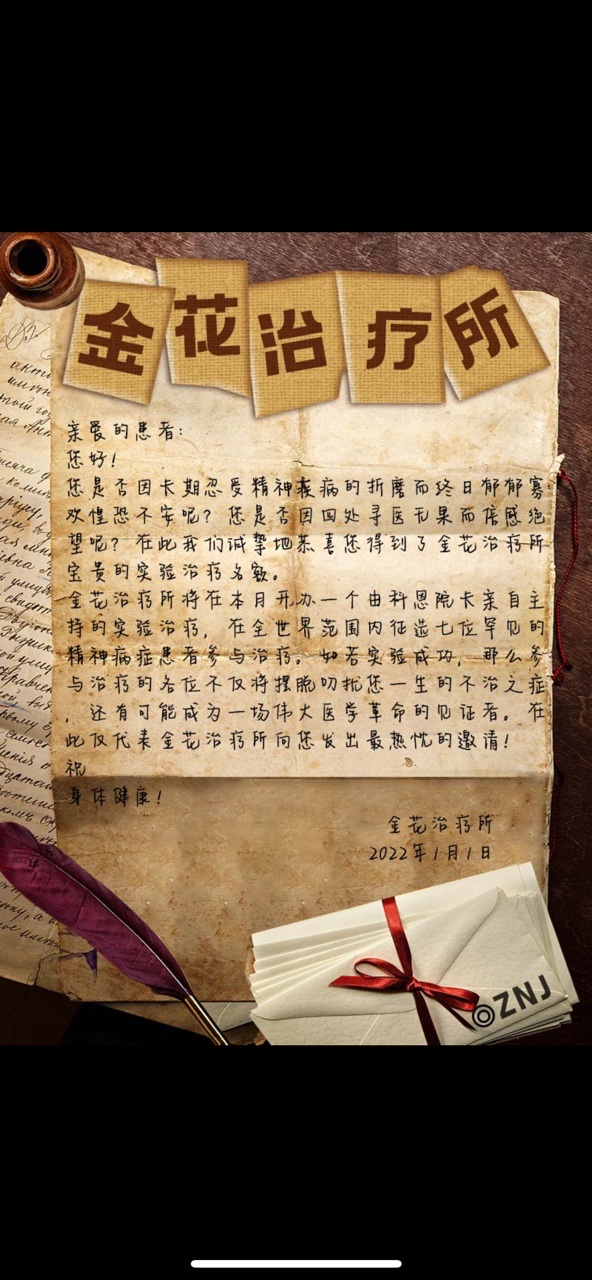 金花治疗所
亲爱的患者：
您好！
您是否因长期忍受精神疾病的折磨而终日郁郁寡
欢惶恐不安呢？您是否因四处寻医无果而倍感绝
望呢？在此我们诚挚地恭喜您得到了金花治疗所
宝贵的实验治疗名额。
金花治疗所将在本月开办一个由科恩院长亲自主
持的实验治疗，在全世界范围内征选七位罕见的
精神病症患者参与治疗。如若实验成功，那么参
与治疗的各位不仅将摆脱叨扰您一生的不治之症
，还有可能成为一场伟大医学革命的见证者。在
此仅代表金花治疗所向您发出最热忱的邀请！
祝
身体健康！
金花治疗所
2022年1月1日
◎ZNJ